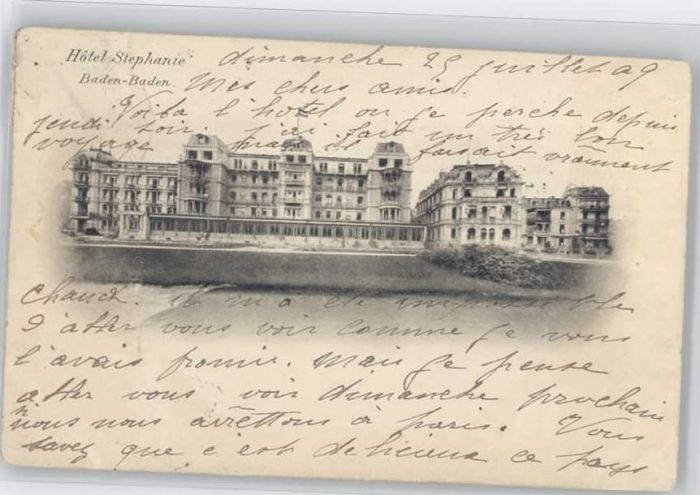 Hôtel Stephanie
Baden-Baden
dimanche 25 juillet 09
Mes chers amis.
Voila l'hôtel ou je perche depuis
jeudi soir, j'ai fait un très bon
voyage mais il faisait vraiment
chaud. il m'a été impossible
d'aller vous voir comme je vous
l'avais promis. mais je pense
aller vous voir dimanche prochain
nous nous arrettons à Paris. Vous
savez que c'est delicieux ce pays